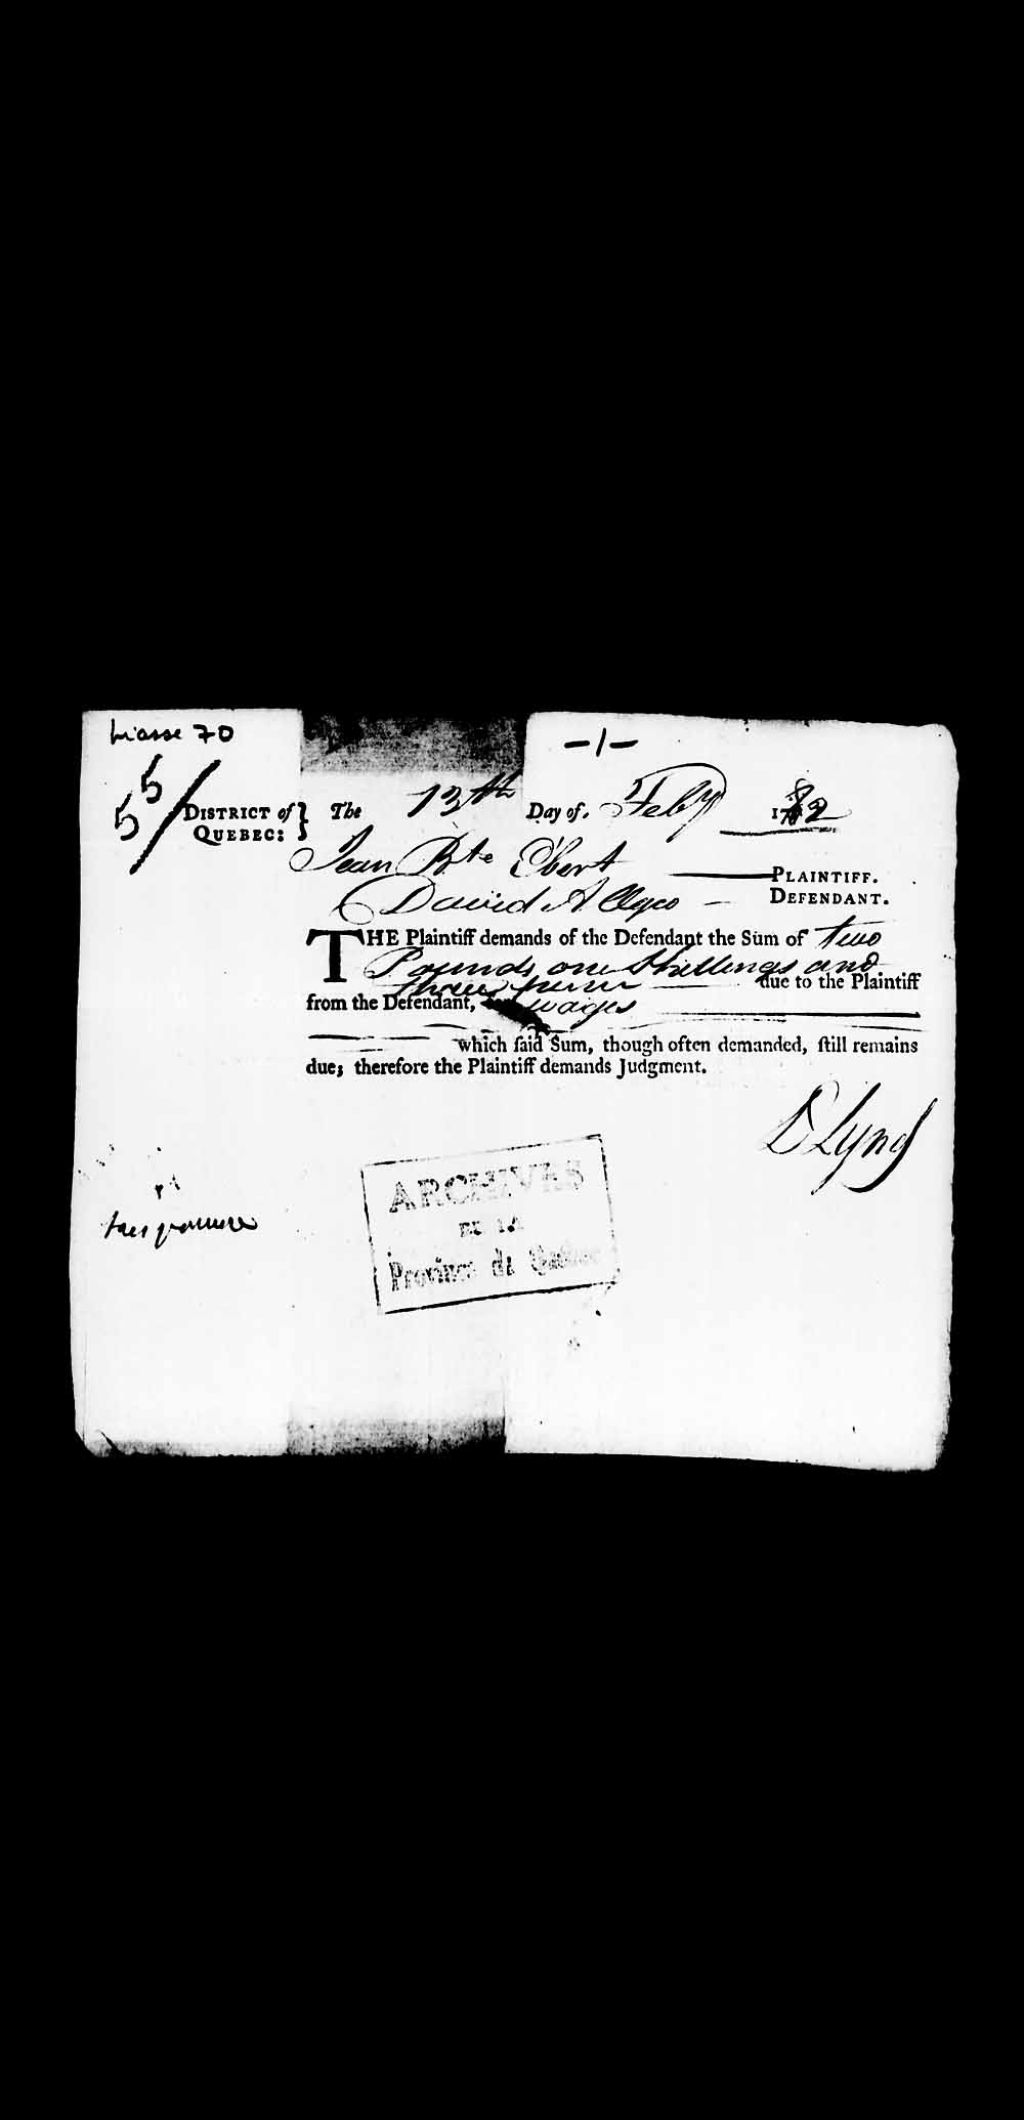 Liasse 70
-1-
55/
DISTRICT of } The 13th Day of. Feby 1782
QUEBEC:
Jean Bte Ebert PLAINTIFF.
David Allgeo DEFENDANT.
THE Plaintiff demands of the Defendant the Sum of two
Pounds one Shillings and
three pence due to the Plaintiff
from the Defendant, for wages
which ſaid Sum, though often demanded, ſtill remains
due; therefore the Plaintiff demands Judgment.
D Lynd
ARCHIVES
DE LA
Province de Québec